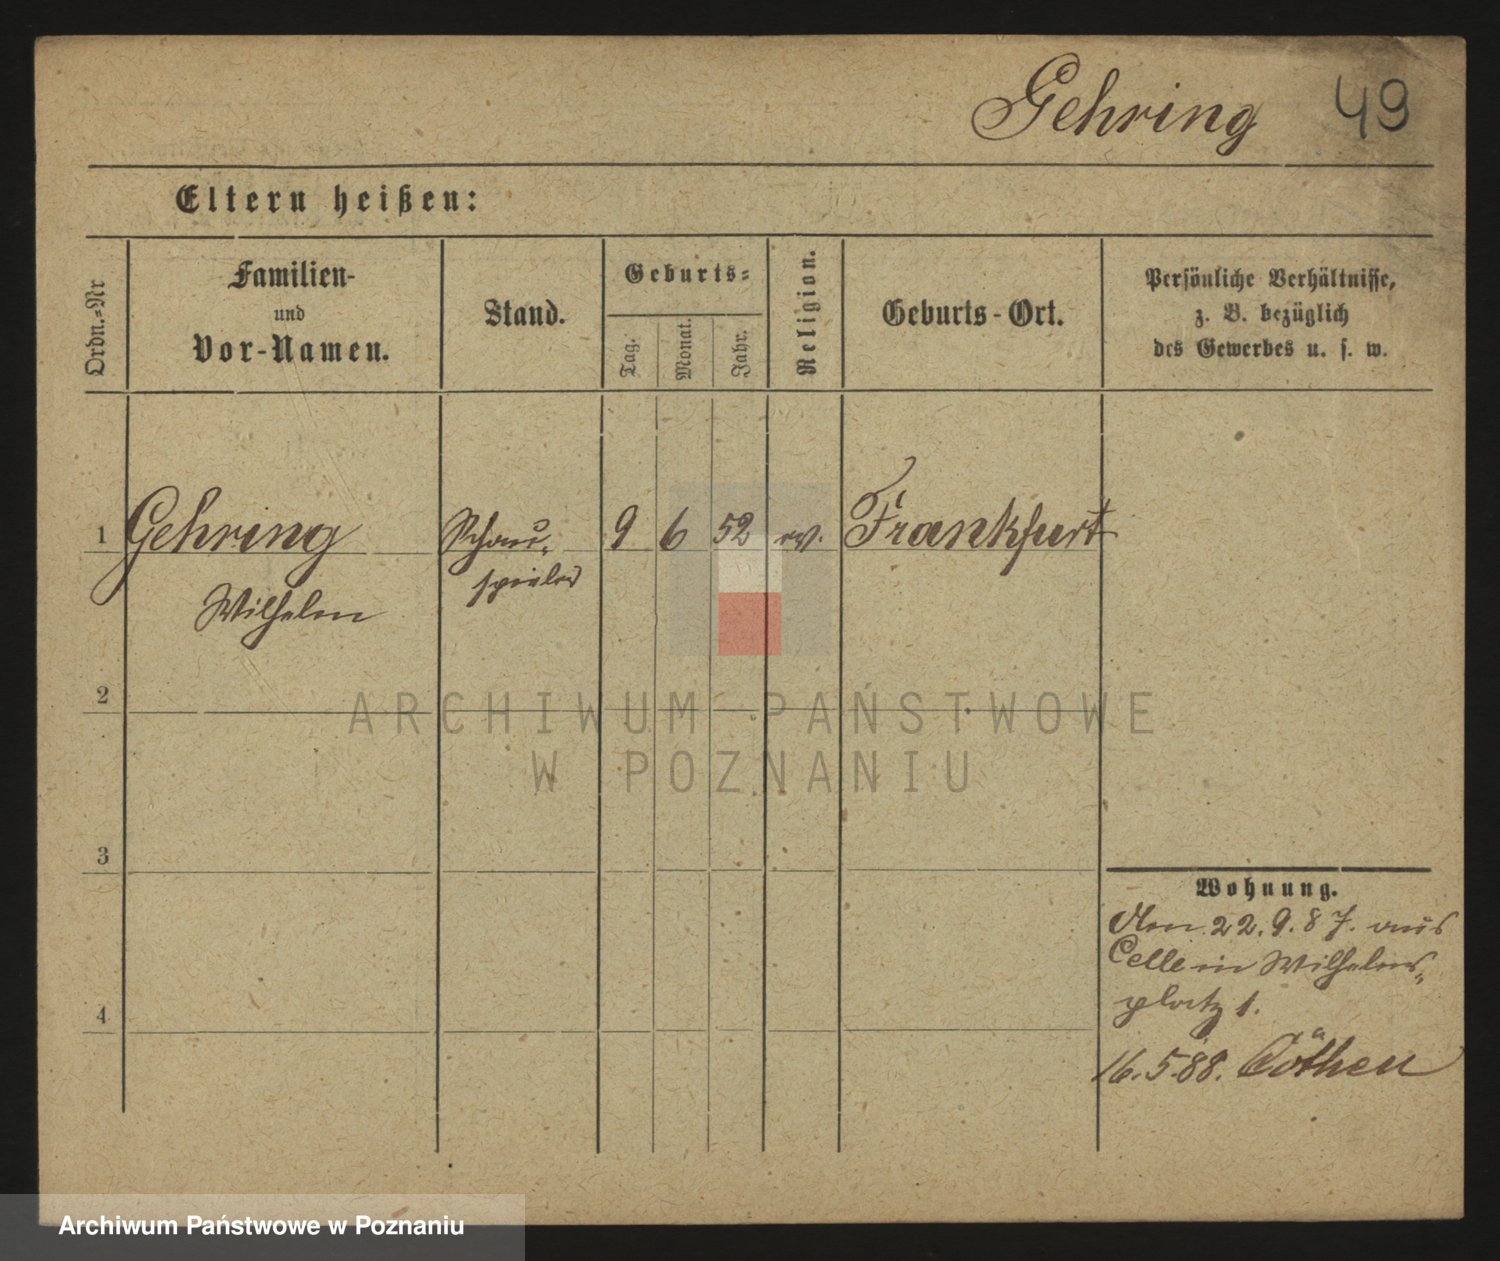 Gehring 49
Eltern heißen:
Ordn.=Nr
Familien-
und
Vor-Namen.
Stand.
Geburts=
Tag.
Monat.
Jahr.
Religion.
Geburts-Ort.
Persönliche Verhältnisse,
z. B. bezüglich
des Gewerbes u. s. w.
1 Gehring Schau- 9 6 52 ev. Frankfurt
spieler
Wilhelm
2
3
4
Wohnung.
Den 22.9.87. aus
Celle in Wilhelms-
platz 1.
16.5.88. Cöthen
ARCHIWUM PAŃSTWOWE
W POZNANIU
Archiwum Państwowe w Poznaniu